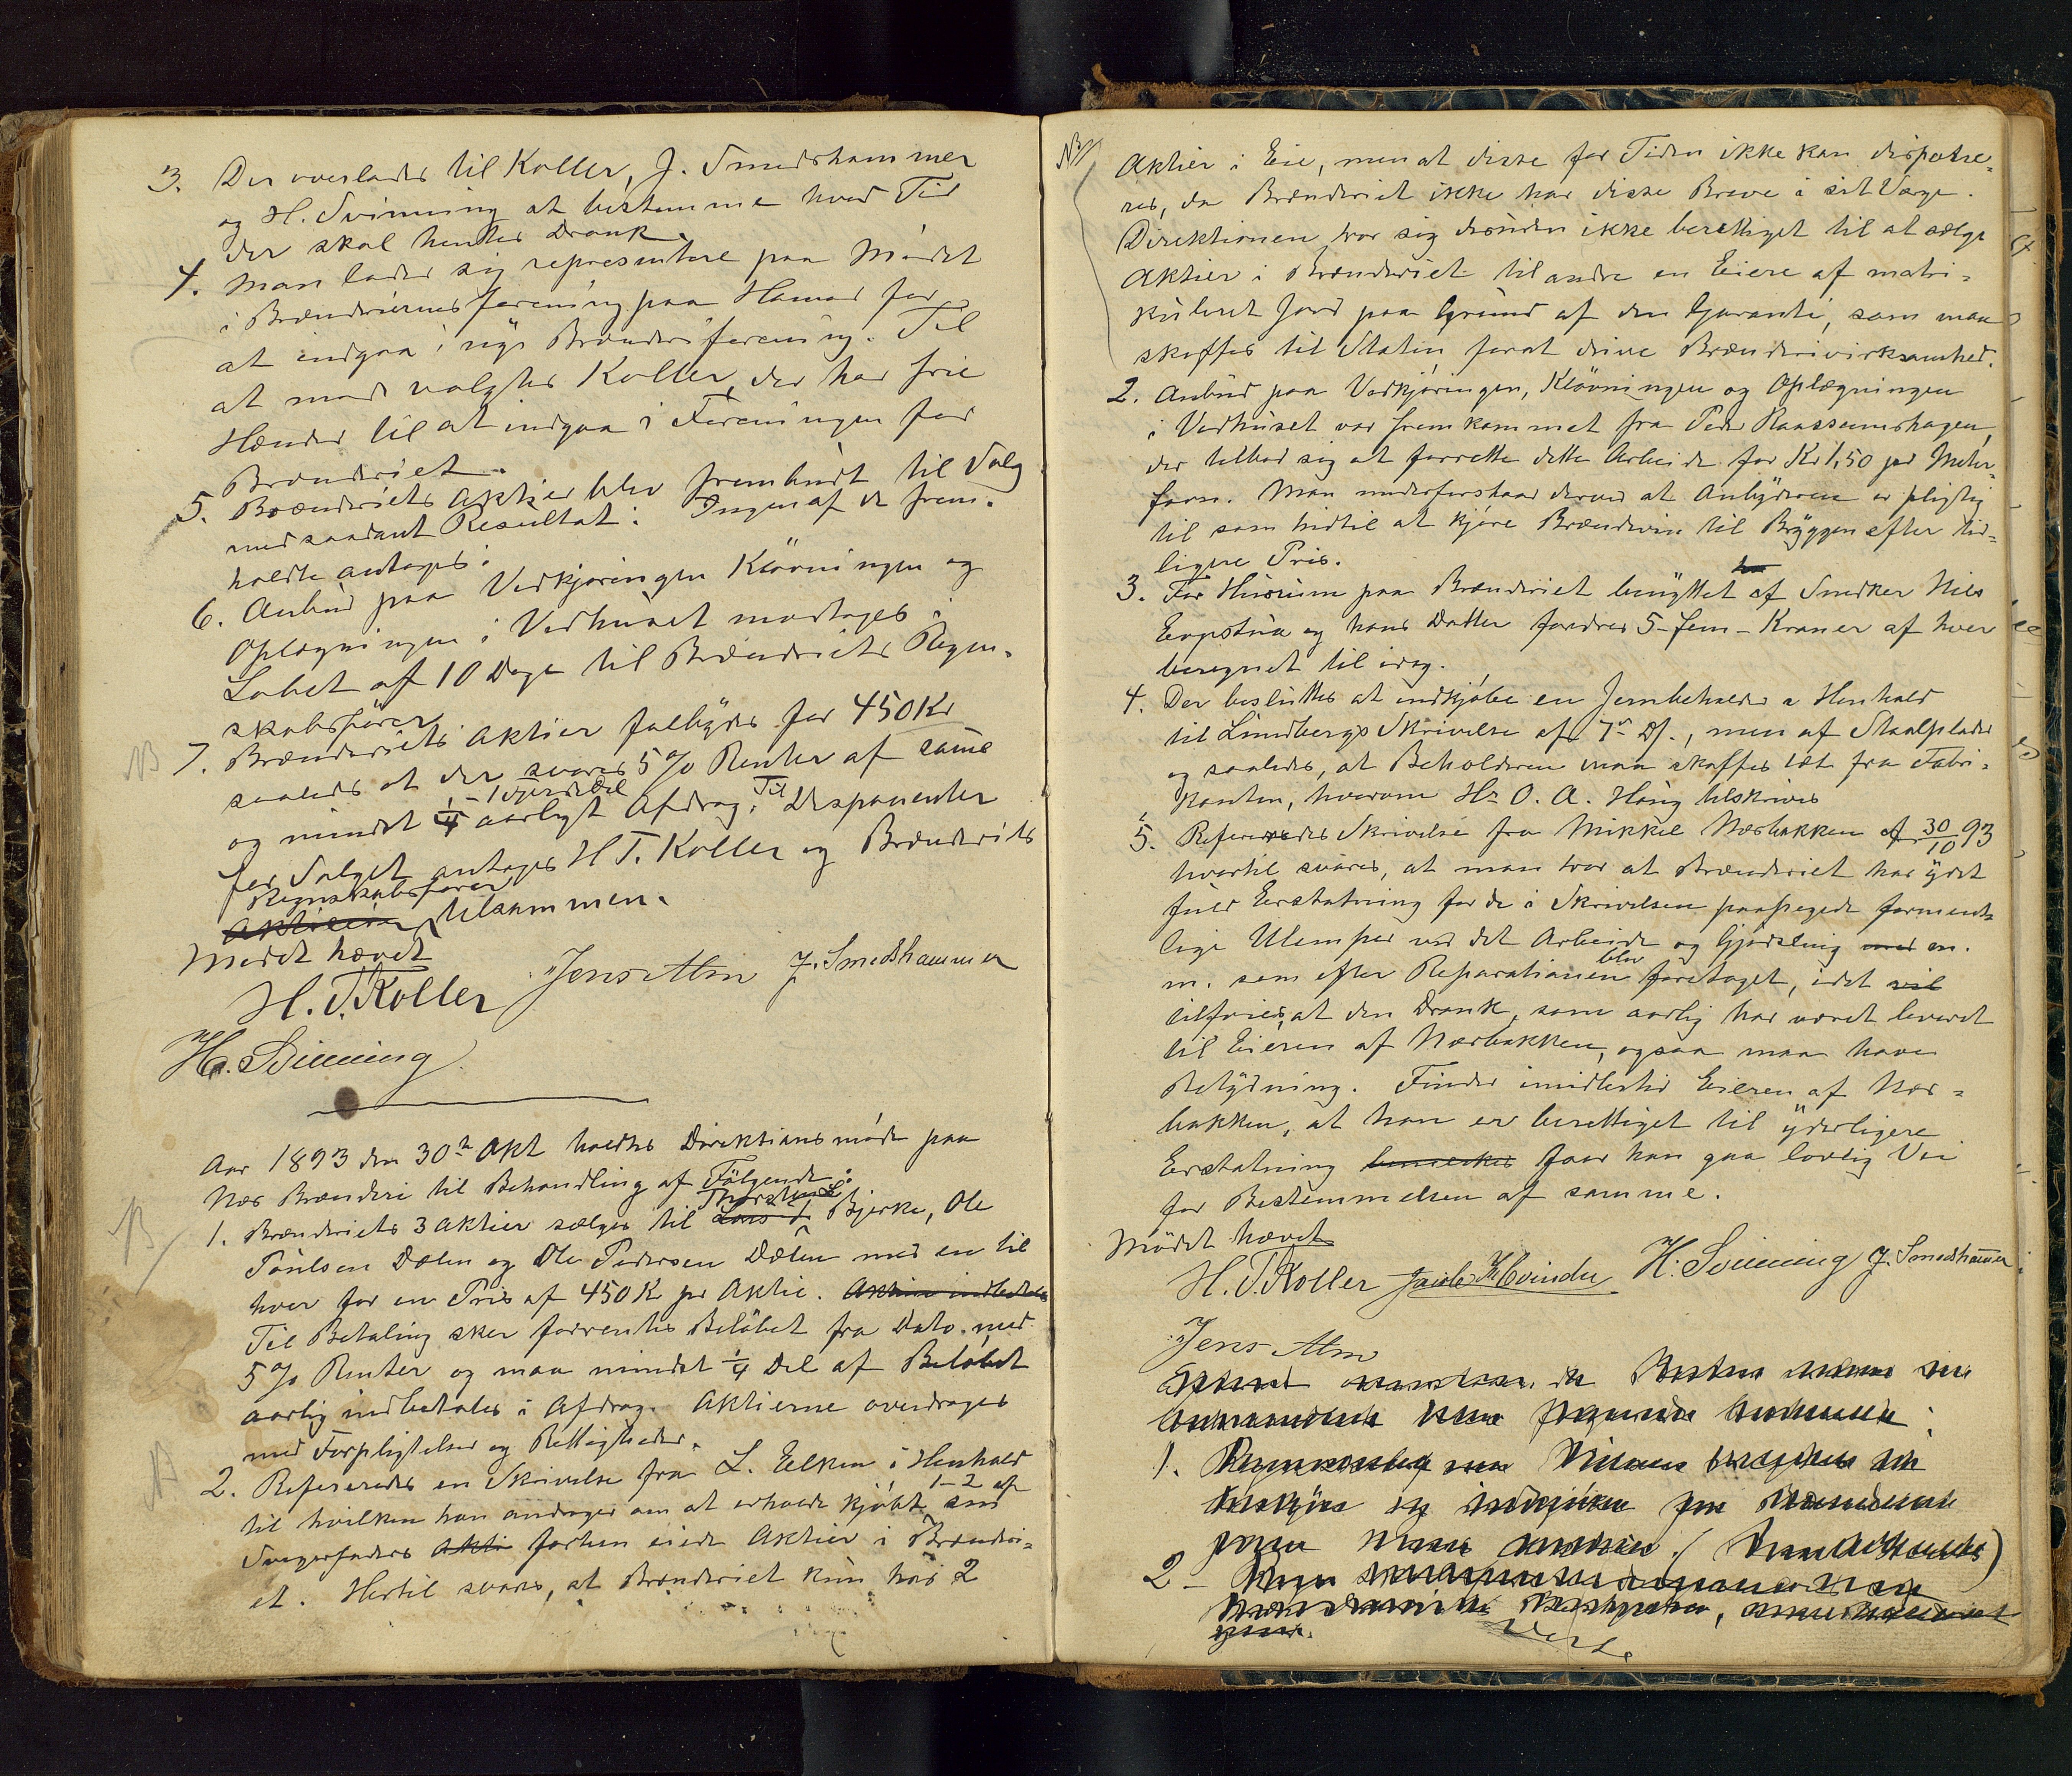 3. Der overlades til Koller, J. Smedshammer
og H. Svinning at bestemme hvad Tid
der skal hentes Drank.
4. Man lader sig representere paa Mødet
i Brænderiernes forening paa Hamar for
at indgaa i nye Brænderiforening. Til
at møde valgtes Koller, der har frie
Hænder til at indgaa i Foreningen for
Brænderiet.
5. Brænderiets Aktier blev frembudt til Salg
med saadant Resultat: Ingen af de frem-
holdte antages.
6. Anbud paa Vedkjøringen Kløvningen og
Oplægningen i Vedhuset modtages i
Løbet af 10 Dage til Brænderiets Regn-
skabsfører.
NB 7. Brænderiets Aktier falbydes for 450 Kr
saaledes at der svares 5 % Renter af samme
og mindst 1/4 - 1 fjerdedel aarligt Afdrag. Til Disponenter
for Salget antages H T. Koller og Brænderiets
Aktieeier Regnskabsfører tilsammen.
Mødet hævet
H. T. Koller Jens Alm J. Smedshammer
H. Svinning
Aar 1893 den 30te Okt holdtes Direktionsmøde paa
Næs Brænderi til Behandling af Følgende:
NB 1. Brænderiets 3 Aktier sælges til Lars Thorsten Bjerke, Ole
Paulsen Dælin og Ole Pedersen Dælin med en til
hver for en Pris af 450 K pr Aktie. Aktien indbetales
Til Betaling sker forrentes Beløbet fra Dato med
5 % Renter og maa mindst 1/4 Del af Beløbet
aarlig indbetales i Afdrag. Aktierne overdrages
med Forpligtelser og Rettigheder.
2. Refereredes en Skrivelse fra L. Eeken i Henhold
til hvilken han andrager om at erholde kjøbt 1-2 af sin
Svigerfaders Akti forhen eiede Aktier i Brænderi-
et. Hertil svares, at Brænderiet kun har 2
NB Aktier i Eie, men at disse for Tiden ikke kan dispone-
res, da Brænderiet ikke har disse Breve i sit Værge.
Direktionen tror sig desuden ikke berettiget til at sælge
Aktier i Brænderiet til andre en Eiere af matri-
kuleret Jord paa Grund af den Garanti, som maa
skaffes til Staten for at drive Brænderivirksomhed.
2. Anbud paa Vedkjøringen, Kløvningen og Oplægningen
i Vedhuset var fremkommet fra Peder Raassumshagen,
der tilbød sig at forrette dette Arbeide for Kr 1,50 pr Meter-
favn. Man underforstaar derved at Anbyderen er pligtig
til som hidtil at kjøre Brændevin til Bryggen efter tid-
ligere Pris.
3. For Husrum paa Brænderiet benyttet af Snedker Nils
Evjestua og hans Datter fordres 5 - fem - Kroner af hver
beregnet til idag.
4. Der besluttes at indkjøbe en Jernbeholder i Henhold
til Lundbergs Skrivelse af 7de Ds., men af Staalplader
og saaledes, at Beholderen maa skaffes tæt fra Fabri-
kanten, hvorom Hr O. A. Haug tilskrives
5. Refereredes Skrivelse fra Mikkel Næsbakken af 30/10 93
hvortil svares, at man tror at Brænderiet har ydet
fuld Erstatning for de i Skrivelsen paapegede forment-
lige Ulemper ved det Arbeide og Gjødsling med m.
m. som efter Reparationen blev foretaget, idet vil
tilføies, at den Drank, som aarlig har været leveret
til Eieren af Næsbakken, ogsaa maa have
Betydning. Finder imidlertid Eieren af Næs-
bakken, at han er berettiget til yderligere
Erstatning bemerkes faar han gaa lovlig Vei
for Bestemmelsen af samme.
Mødet hævet
H. T. Koller Jacob K Hvinden H. Svinning J. Smedshammer
Jens Alm
1.
2 -
Vend.